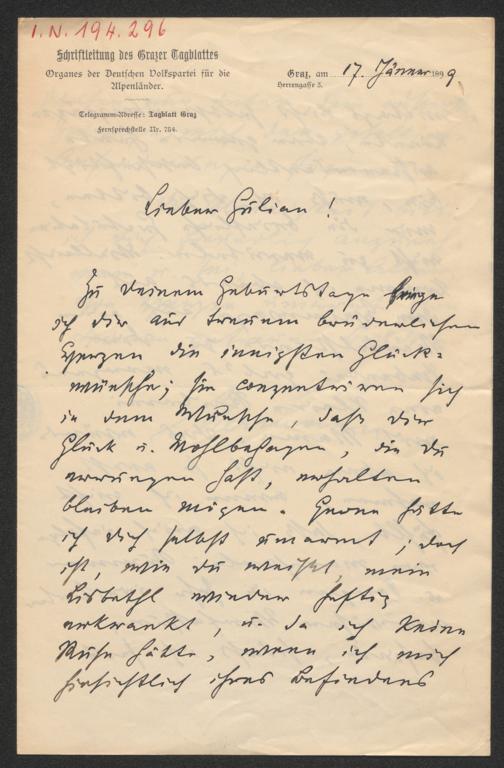 I. N. 194.296
Schriftleitung des Grazer Tagblattes
Organes der Deutschen Volkspartei für die
Alpenländer.
Telegramm-Adresse: Tagblatt Graz
Fernsprechstelle Nr. 784.
Graz, am 17. Jänner 1899
Herrengasse 3.
Lieber Julian!
Zu deinem Geburtstage bringe
ich dir aus treuem brüderlichem
Herzen die innigsten Glück-
wünsche; sie conzentriren sich
in dem Wunsche, daß dir
Glück u. Wohlbehagen, die du
errungen hast, erhalten
bleiben mögen. Gerne hätte
ich dich selbst umarmt; doch
ist, wie du weißt, mein
Lisbethl wieder heftig
erkrankt, u. da ich keine
Ruhe hätte, wenn ich mich
hinsichtlich ihres Befindens